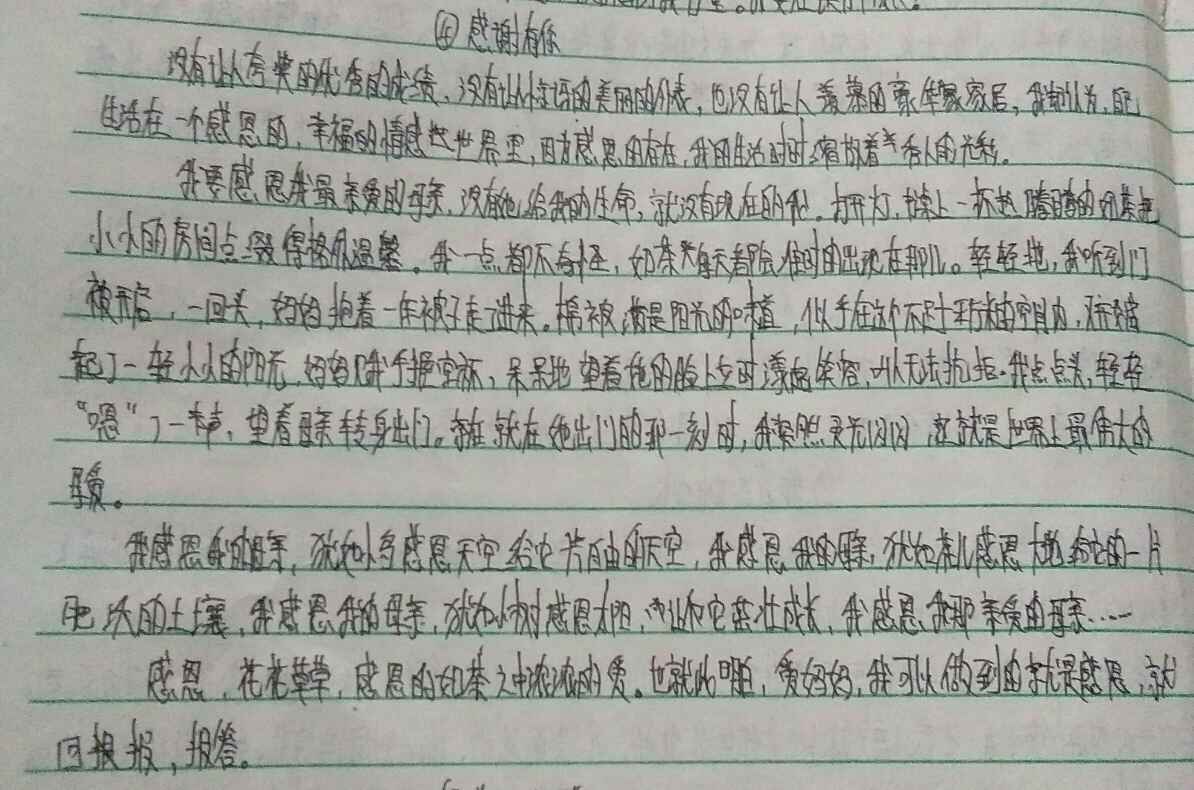 ④感谢有你
没有让人夸奖的优秀的成绩，没有让人惊讶的美丽的外表，也没有让人羡慕的豪华家居，我却认为，自己
生活在一个感恩的，幸福的情感世界里，因为感恩的存在，我的生活时时绽放着秀人的光彩。
我要感恩我最亲爱的母亲，没有她给我的生命，就没有现在的我。打开灯，桌上一杯热腾腾的奶茶把
小小的房间点缀得格外温馨。我一点都不奇怪，奶茶每天都会准时的出现在那儿。轻轻地，我听到门
被开启，一回头，妈妈抱着一床被子走进来。棉被满是阳光的味道，似乎在这个不足十平米的空间内，
起了一轮小小的阳光，妈妈见我手握空杯，呆呆地望着她的脸上立时漾起笑容，叫人无法抗拒。我点点头，轻轻
“嗯”了一声，望着母亲转身出门。就在她出门的那一刻时，我突然灵光闪闪，这就是世界上最伟大的
母爱。
我感恩我的母亲，犹如小鸟感恩天空给它一片自由的天空，我感恩我的母亲，犹如花儿感恩大地给它的一片
肥沃的土壤，我感恩我的母亲，犹如小树感恩太阳，让它茁壮成长，我感恩我那亲爱的母亲……
感恩，花花草草，感恩的奶茶之中浓浓的爱。也就此，爱妈妈，我可以做到的就是感恩，就
回报报，报答。